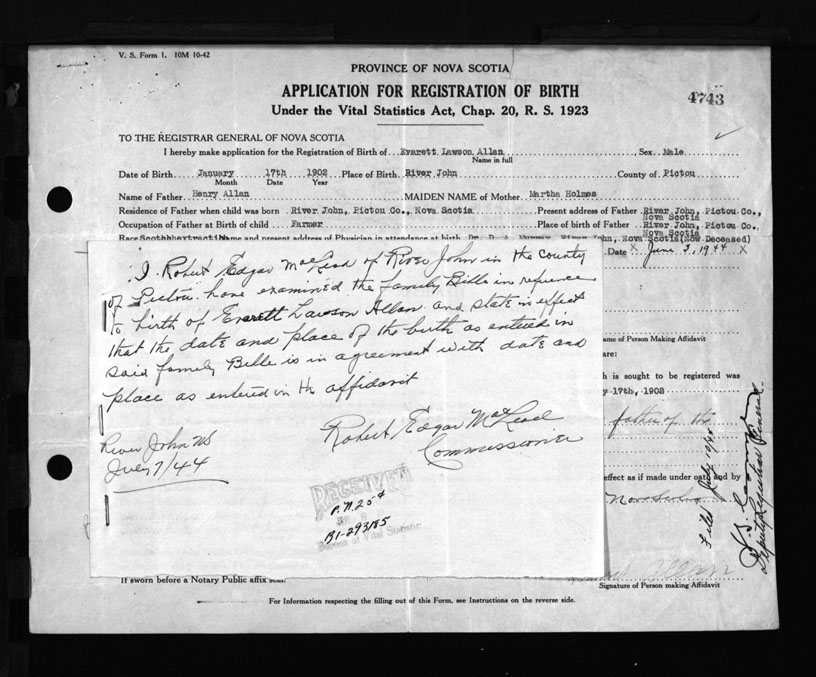 V. S. Form 1. 10M 10-42
PROVINCE OF NOVA SCOTIA
APPLICATION FOR REGISTRATION OF BIRTH
Under the Vital Statistics Act, Chap. 20, R. S. 1923
4743
TO THE REGISTRAR GENERAL OF NOVA SCOTIA
I hereby make application for the Registration of Birth of Evarett Lawson Allan Sex Male
Name in full
Date of Birth January 17th 1902 Place of Birth River John County of Pictou
Month Date Year
Name of Father Henry Allan MAIDEN NAME of Mother Martha Holmes
Residence of Father when child was born River John, Pictou Co., Nova Scotia Present address of Father River John, Pictou Co., Nova Scotia
Occupation of Father at Birth of child Farmer Place of birth of Father River John, Pictou Co., Nova Scotia
Race Name and present address of Physician in attendance at birth Dr. D. A. John, Nova Scotia (Now Deceased)
Date X June 3, 1944 X
I Robert Edgar MacLeod of River John in the County
of Pictou have examined the family Bible in refrence
to birth of Everett Lawson Allan and state in effect
that the date and place of the birth as entered in
said family Bible is in agreement with date and
place as entered in the affidavit
Robert Edgar MacLeod
Commissioner
River John NS
July 7/44
RECEIVED
P.N. 25¢
B1-293185
Bureau of Vital Statistics
ame of Person Making Affidavit
are:
h is sought to be registered was
y 17th, 1902
father of the
effect as if made under oath and by
Filed July 10/44
Deputy Registrar General.
Allan
Signature of Person making Affidavit
If sworn before a Notary Public affix seal.
For Information respecting the filling out of this Form, see Instructions on the reverse side.